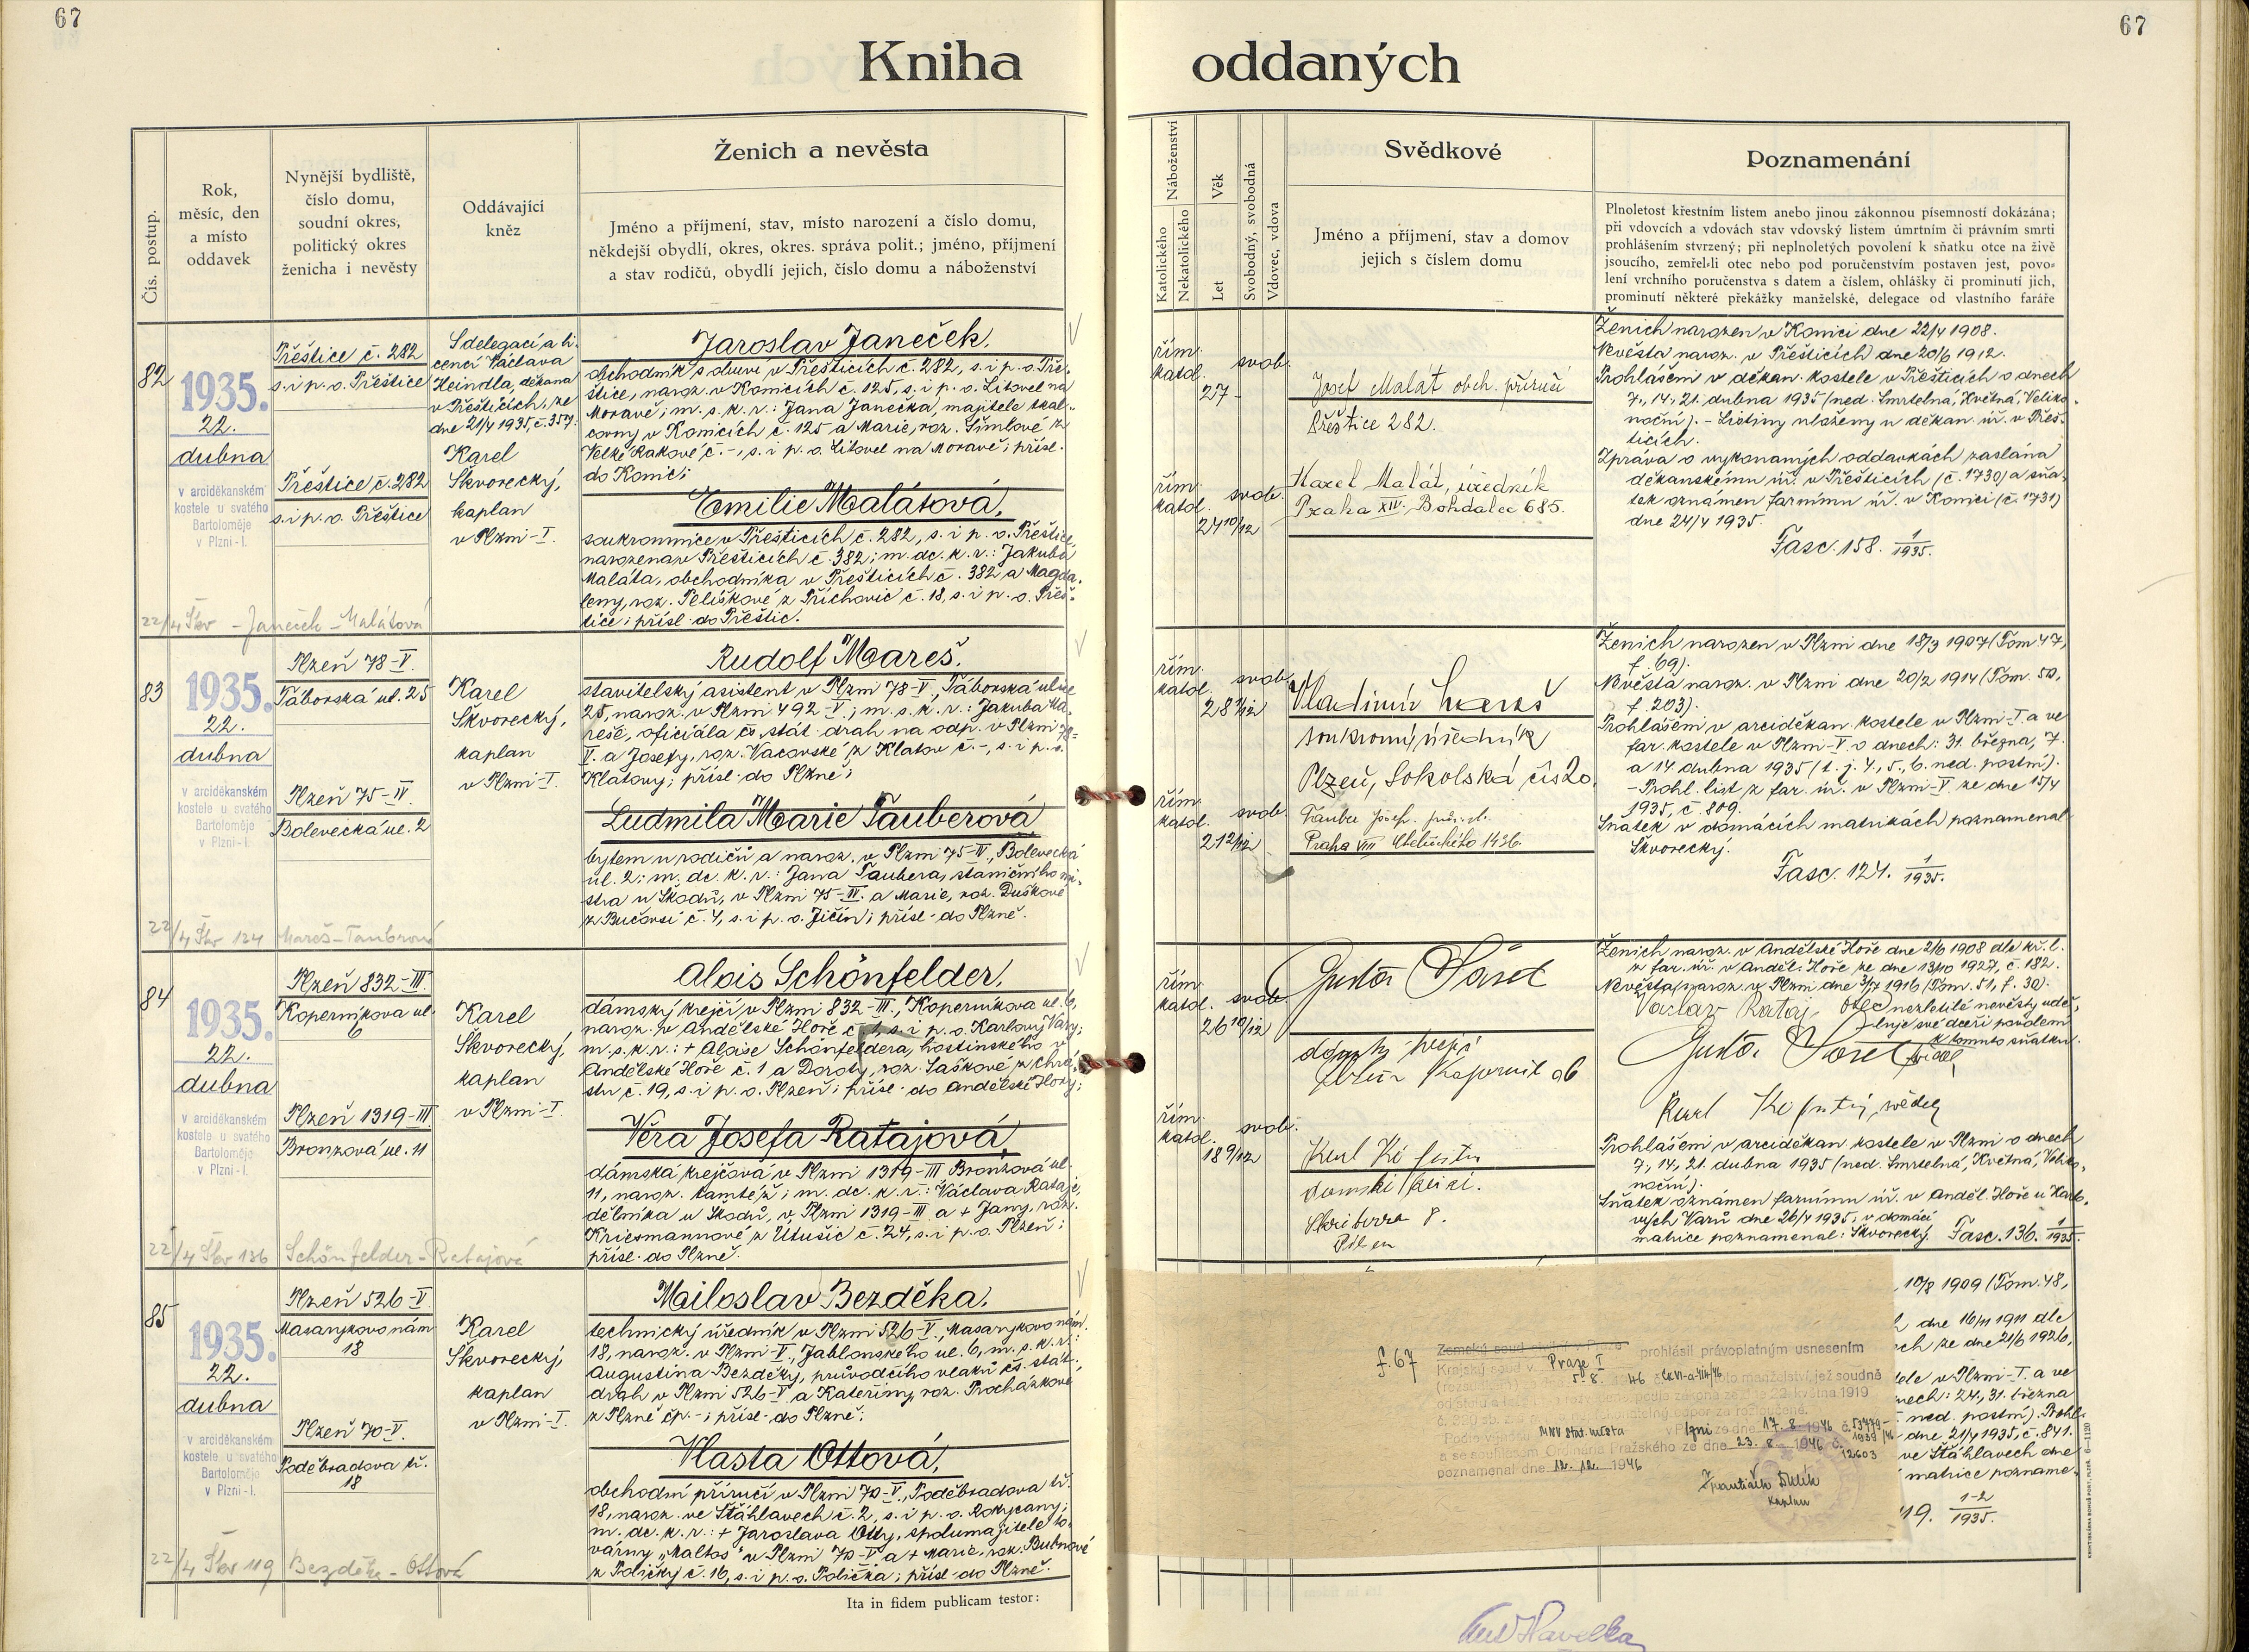 67
67
Kniha oddaných
Čís. postup.
Rok,
měsíc, den
a místo
oddavek
Nynější bydliště,
číslo domu,
soudní okres,
politický okres
ženicha i nevěsty
Oddávající
kněz
Ženich a nevěsta
Jméno a příjmení, stav, místo narození a číslo domu,
někdejší obydlí, okres, okres. správa polit.; jméno, příjmení
a stav rodičů, obydlí jejich, číslo domu a náboženství
Náboženství
Katolického
Nekatolického
Věk
Let
Svobodný, svobodná
Vdovec, vdova
Svědkové
Jméno a příjmení, stav a domov
jejich s číslem domu
Poznamenání
Plnoletost křestním listem anebo jinou zákonnou písemností dokázána;
při vdovcích a vdovách stav vdovský listem úmrtním či právním smrti
prohlášením stvrzený; při neplnoletých povolení k sňatku otce na živě
jsoucího, zemřel-li otec nebo pod poručenstvím postaven jest, povo-
lení vrchního poručenstva s datem a číslem, ohlášky či prominutí jich,
prominutí některé překážky manželské, delegace od vlastního faráře
82
1935.
22.
dubna
v arciděkanském
kostele u svatého
Bartoloměje
v Plzni-I.
Přeštice č. 282
s. i p. o. Přeštice
Přeštice č. 282
s. i p. o. Přeštice
S delegací a li-
cencí Václava
Heindla, děkana
v Přešticích, ze
dne 21/4 1935, č. 357:
Karel
Škvorecký,
kaplan
v Plzni-I.
Jaroslav Janeček,
obchodník s obuví v Přešticích č. 282, s. i p. o. Pře-
štice, naroz. v Konicích č. 125, s. i p. o. Litovel na
Moravě; m. s. k. r.: Jana Janečka, majitele tkal-
covny v Konicích č. 125 a Marie, roz. Šímlové z
Velké Rakové č. -, s. i p. o. Litovel na Moravě; přísl.
do Konic;
Emilie Malátová,
soukromnice v Přešticích č. 282, s. i p. o. Přeštice,
narozena v Přešticích č. 382; m. dc. k. r.: Jakuba
Maláta, obchodníka v Přešticích č. 382 a Magda-
leny, roz. Pelíškové z Příchovic č. 18, s. i p. o. Přeš-
tice; přísl. do Přeštic.
22/4 Škv - Janeček - Malátová
řím.
katol.
27 -
svob.
Josef Malát obch. příručí
Přeštice 282.
řím.
katol.
svob.
Karel Malát, úředník
Praha XIV, Bohdalec 685.
24 10/12
Ženich narozen v Konici dne 22/4 1908.
Nevěsta naroz. v Přešticích dne 20/6 1912.
Prohlášeni v děkan. kostele v Přešticích o dnech
7., 14., 21. dubna 1935 (ned. Smrtelná, Květná, Veliko-
noční). - Listiny uloženy u děkan. úř. v Přeš-
ticích.
Zpráva o vykonaných oddavkách zaslána
děkanskému úř. v Přešticích (č. 1730) a sňa-
tek oznámen farnímu úř. v Konici (č. 1731)
dne 24/4 1935.
Fasc. 158. 1/1935.
83
1935.
22.
dubna
v arciděkanském
kostele u svatého
Bartoloměje
v Plzni-I.
Plzeň 78-V.
Táborská ul. 25
Plzeň 75-IV.
Bolevecká ul. 2
Karel
Škvorecký,
kaplan
v Plzni-I.
Rudolf Mareš,
stavitelský asistent v Plzni 78-V., Táborská ulice
25, naroz. v Plzni 492-V.; m. s. k. r.: Jakuba Ma-
reše, oficiála čs. stát. drah na odp. v Plzni 78-
V. a Josefy, roz. Vacovské z Klatov č. -, s. i p. o.
Klatovy; přísl. do Plzně;
Ludmila Marie Tauberová
bytem u rodičů a naroz. v Plzni 75-IV., Bolevecká
ul. 2; m. dc. k. r.: Jana Taubera, staničního mi-
stra u Škodů, v Plzni 75-IV. a Marie, roz. Duškové
z Bučovsi č. 4, s. i p. o. Jičín; přísl. do Plzně.
22/4 Škv 124 Mareš-Taubrová
řím.
katol.
svob.
28 1/12
Vladimír Mareš
soukromý úředník
Plzeň, Sokolská čís 20.
řím.
katol.
svob.
21 2/12
Tauber Josef
Praha VIII 1436.
Ženich narozen v Plzni dne 18/3 1907 (Tom 47,
f. 69).
Nevěsta naroz. v Plzni dne 20/2 1914 (Tom. 50,
f. 203).
Prohlášeni v arciděkan. kostele v Plzni-I. a ve
far. kostele v Plzni-V. o dnech: 31. března, 7.
a 14 dubna 1935 (t. j. 4., 5., 6. ned. postní).
- Prohl. list z far. úř. v Plzni-V ze dne 15/4
1935, č 809.
Sňatek v domácích matrikách poznamenal
Škvorecký.
Fasc. 124. 1/1935.
84
1935.
22.
dubna
v arciděkanském
kostele u svatého
Bartoloměje
v Plzni-I.
Plzeň 832-III.
Koperníkova ul.
6
Plzeň 1319-III
Bronzová ul. 11
Karel
Škvorecký,
kaplan
v Plzni-I.
Alois Schönfelder,
dámský krejčí v Plzni 832-III., Koperníkova ul. 6,
naroz. v Andělské Hoře č. 1, s. i p. o. Karlovy Vary;
m. s. k. r.: + Aloise Schönfeldera, hostinského v
Andělské Hoře č. 1 a Doroty, roz. Saškové z Chrá-
stu č. 19, s. i p. o. Plzeň; přísl. do Andělské Hory;
Věra Josefa Ratajová,
dámská krejčová v Plzni 1319-III Bronzová ul.
11, naroz. tamtéž; m. dc. k. r.: Václava Rataje,
dělníka u Škodů, v Plzni 1319-III a + Jany, roz.
Kriesmannové z Utušic č. 24, s. i p. o. Plzeň;
přísl. do Plzně.
22/4 Škv 136 Schönfelder-Ratajová
řím.
katol.
svob.
26 10/12
Gustav
řím.
katol.
svob.
18 9/12
Karl
8.
Ženich naroz. v Andělské Hoře dne 2/6 1908 dle kř. l.
z far. úř. v Anděl. Hoře ze dne 13/10 1927, č. 182.
Nevěsta naroz. v Plzni dne 3/7 1916 (Tom. 51, f. 30).
Václav Rataj, otec nezletilé nevěsty udě-
luje své dceři povolení
k tomuto sňatku.
Gustav
Karl svědek
Prohlášeni v arciděkan. kostele v Plzni o dnech
7., 14., 21. dubna 1935 (ned. Smrtelná, Květná, Veliko-
noční).
Sňatek oznámen farnímu úř. v Anděl. Hoře u Karlo-
vých Varů dne 26/4 1935; v domácí
matrice poznamenal: Škvorecký. Fasc. 136. 1/1935.
85
1935.
22.
dubna
v arciděkanském
kostele u svatého
Bartoloměje
v Plzni-I.
Plzeň 526-V.
Masarykovo nám
18
Plzeň 70-V.
Poděbradova tř.
18
Karel
Škvorecký,
kaplan
v Plzni-I.
Miloslav Bezděka,
technický úředník v Plzni 526-V., Masarykovo nám.
18, naroz. v Plzni-V., Jablonského ul. 6, m. s. k. r.:
Augustina Bezděky, průvodčího vlaků čs. stát.
drah v Plzni 526-V a Kateřiny, roz. Procházkové
z Plzně čp. -; přísl. do Plzně;
Vlasta Ottová,
obchodní příručí v Plzni 70-V., Poděbradova tř.
18, naroz. ve Štáhlavech č. 2, s. i p. o. Rokycany;
m. dc. k. r.: + Jaroslava Otty, spolumajitele to-
várny „Maltos" v Plzni 70-V a + Marie, roz. Bubnové
z Poličky č. 16, s. i p. o. Polička; přísl. do Plzně.
22/4 Škv 119 Bezděka - Ottová
f. 67
Zemský soud civilní v Praze
Krajský soud v Praze I prohlásil právoplatným usnesením
5. 8. 46 manželství, jež soudně
podle zákona ze dne 22. května 1919
č. 320 sb. z. a n.
Podle výnosu MNV stat. města v Plzni ze dne 17. 8. 1946 č. 53779-
1939/46
a se souhlasem Ordinariátu Pražského ze dne 23. 8. 1946 č. 12603
poznamenal dne 12. 12. 1946
František
kaplan
10/8 1909 (Tom. 48,
dne 16/11 1911 dle
ch ze dne 21/6 1926,
tele v Plzni-I. a ve
nech: 24., 31. března
ned. postní). Prohl.
dne 21/4 1935, č. 841.
ve Štáhlavech dne
matrice pozname-
119. 1-2/1935.
Ita in fidem publicam testor:
Havelka